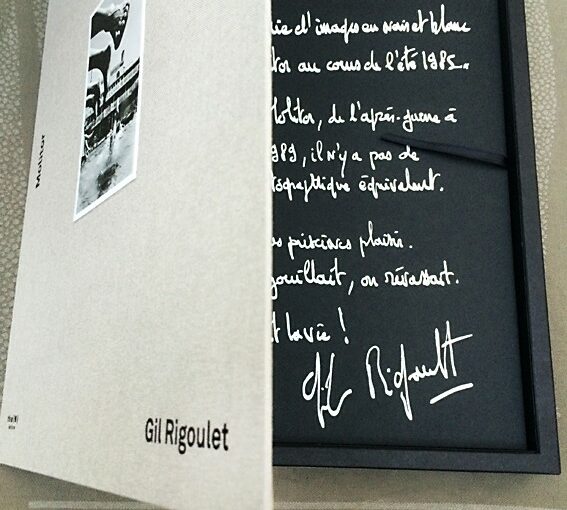 Molitor
Gil Rigoulet
d'images en noir et blanc
au cours de l'été 1985.
Molitor, de l'après-guerre à
1989, il n'y a pas de
équivalent.
piscines plaisir.
on rêvassait.
la vie !
Gil Rigoulet